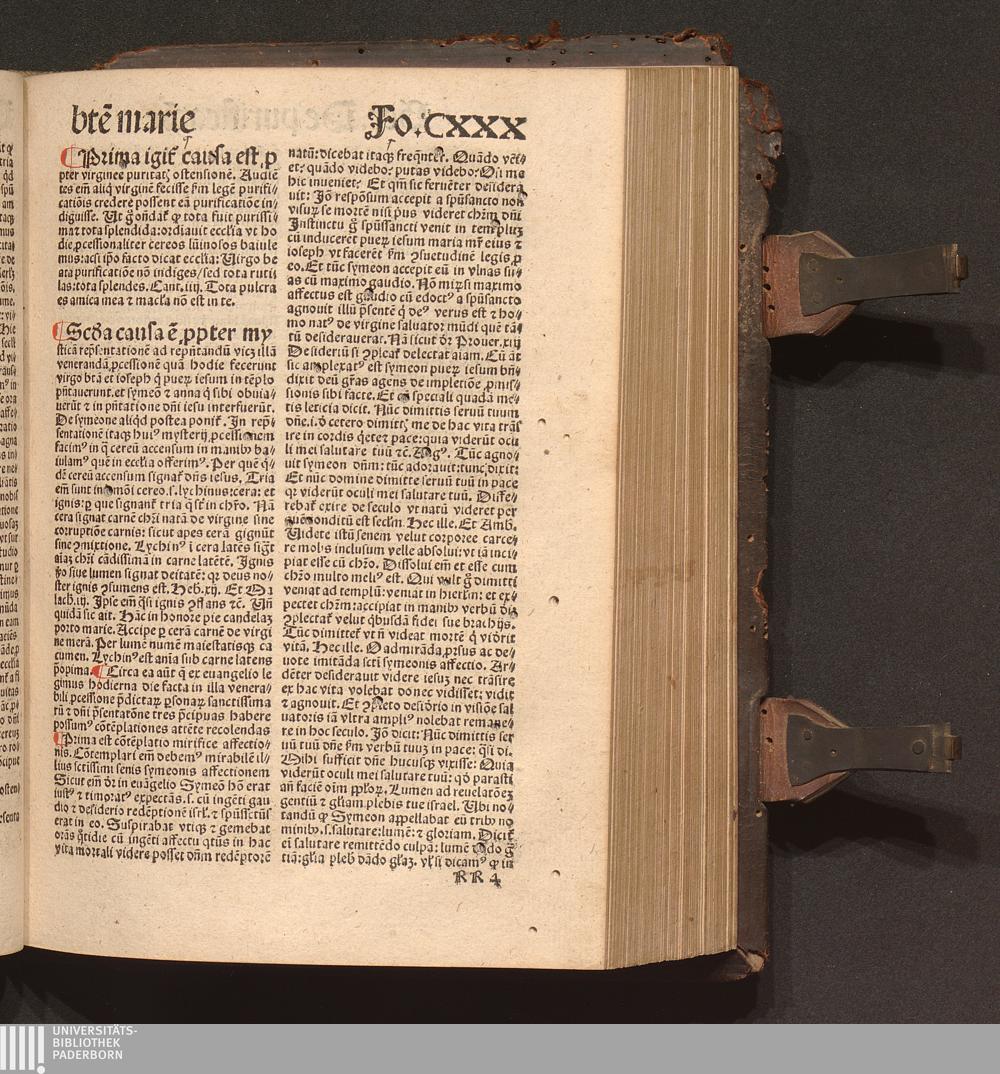 btē marie Fo. CXXX
Prima igit᷑ causa est, ꝓ
pter virginee puritatꝭ ostensionē. Audiē
tes em̄ aliq̄ virginē fecisse ẜm legē purifi-
catiōis credere possent eā purificatiōe in-
diguisse. Ut g̊ ondat᷑ ꝙ tota fuit purissi-
ma ⁊ tota splendida: ordiauit ecclīa vt ho
die ꝓcessionaliter cereos lūinosos baiule
mus: acsi ip̄o facto dicat ecclīa: Uirgo be
ata purificatiōe nō indiges/ sed tota ruti
las: tota splendes. Cant. iiij. Tota pulcra
es amica mea ⁊ macl̄a nō est in te.
Scd̄a causa ē ꝓpter my
sticā rep̄sentationē ad rep̄ntandū vicꝫ illā
venerandā ꝓcessionē quā hodie fecerunt
virgo btā et ioseph q̄ puerꝫ iesum in tēplo
p̄ntauerunt. et symeō ⁊ anna q̄ sibi obuia-
uerūt ⁊ in p̄ntatione dn̄i iesu interfuerūt.
De symeone aliqd̄ postea ponit᷑. In rep̄-
sentationē itaqꝫ huiꝰ mysterij ꝓcessionem
facimꝰ in q̄ cereū accensum in manibꝰ ba-
iulamꝰ quē in ecclīa offerimꝰ. Per quē q̄-
dē cereū accensum signat᷑ dn̄s iesus. Tria
em̄ sunt in omōi cereo. s. lychinus: cera: et
ignis: ꝑ que signant᷑ tria q̄ s̄t in chr̄o. Nā
cera signat carnē chr̄i natā de virgine sine
corruptiōe carnis: sicut apes cerā gignūt
sine ꝯmixtione. Lychinꝰ ī cera latēs sigt̄
aīaꝫ chr̄i cādissimā in carne latētē. Ignis
ꝟo siue lumen signat deitatē: qꝛ deus no-
ster ignis ꝯsumens est. Heb. xij. Et Ma
lach. iij. Ipse em̄ q̄si ignis ꝯflans ⁊c̄. Un̄
quidā sic ait. Hāc in honore pie candelaꝫ
porto marie. Accipe ꝑ cerā carnē de virgi
ne merā. Per lumē numē maiestatisqꝫ ca
cumen. Lychinꝰ est anīa sub carne latens
p̄opima. Circa ea aūt q̄ ex euangelio le
gimus hodierna die facta in illa venera-
bili ꝓcessione p̄dictarꝫ ꝑsonarꝫ sanctissima
rū ⁊ dn̄i p̄sentatōne tres p̄cipuas habere
possumꝰ cōtēplationes attēte recolendas
Prima est cōtēplatio mirifice affectio-
nis. Cōtemplari em̄ debemꝰ mirabilē il-
lius sctissimi senis symeonis affectionem
Sicut em̄ d̄r in euāgelio Symeō hō erat
iustꝰ ⁊ timoratꝰ expectās. s. cū ingēti gau
dio ⁊ desiderio redēptionē isrl̄. ⁊ spūssctūs
erat in eo. Suspirabat vtiqꝫ ⁊ gemebat
orās q̄tidie cū ingēti affectu qtūs in hac
vita mortali videre posset dn̄m redēptorē
natū: dicebat itaqꝫ freq̄nter. Quādo vēi-
et: quādo videbo: putas videbo: Qsi me
hic inueniet: Et qm̄ sic feruēter desidera
uit: Iō respōsum accepit a spūsancto non
visurꝫ se mortē nisi pꝰus videret chr̄m dn̄i
Instinctu g̊ spūssancti venit in templuꝫ
cū inducerēt puerꝫ iesum maria mr̄ eius ⁊
ioseph vt facerēt ẜm ꝯsuetudinē legis ꝓ
eo. Et tūc symeon accepit eū in vlnas su-
as cū maximo gaudio. Nō mirꝫ si maximo
affectus est gaudio cū edoctꝰ a spūsancto
agnouit illū p̄sentē q̄ deꝰ verus est ⁊ ho-
mo natꝰ de virgine saluator mūdi quē tā-
tū desiderauerat. Nā sicut d̄r Prouer. xiij
Desideriū si ꝯpleat᷑ delectat aīam. Cū āt
sic amplexatꝰ est symeon puerꝫ iesum bn̄-
dixit deū gr̄as agens de impletiōe ꝓmis-
sionis sibi facte. Et cū speciali quadā me-
tis leticia dicit. Nūc dimittis seruū tuum
dn̄e. i. d̄ cetero dimittꝭ me de hac vita trās
ire in cordis q̄ete ⁊ pace: quia viderūt ocu
li mei salutare tuū ⁊c̄. Augꝰ. Tūc agno-
uit symeon dn̄m: tūc adorauit: tunc dixit:
Et nūc domine dimitte seruū tuū in pace
qꝛ viderūt oculi mei salutare tuū. Diffe-
rebat᷑ exire de seculo vt natū videret per
quē conditū est seclm̄. Hec ille. Et Amb.
Uidete iustū senem velut corporee carce-
re molꝰ inclusum velle absolui: vt iā inci-
piat esse cū chr̄o. Dissolui em̄ et esse cum
chr̄o multo meliꝰ est. Qui vult g̊ dimitti
veniat ad templū: veniat in hierl̄m: et ex-
pectet chr̄m: accipiat in manibꝰ verbū dei
ꝯplectat᷑ velut q̄busdā fidei sue brachijs.
Tūc dimittet᷑ vt n̄ videat mortē q̄ viderit
vitā. Hec ille. O admirāda ꝓrsus ac de-
uote imitāda scti symeonis affectio. Ar-
dēter desiderauit videre iesuꝫ nec trāsire
ex hac vita volebat donec vidisset: vidit
⁊ agnouit. Et ꝯpleto desiderio in visiōe sal
uatoris iā vltra ampliꝰ nolebat remane-
re in hoc seculo. Iō dicit: Nūc dimittis ser
uū tuū dn̄e ẜm verbū tuuꝫ in pace: q̄si di.
Mihi sufficit dn̄e hucusqꝫ vixisse: Quia
viderūt oculi mei salutare tuū: qd̄ parasti
an̄ faciē oīm pplorꝫ. Lumen ad reuelatōeꝫ
gentiū ⁊ gl̄iam plebis tue israel. Ubi no-
tandū ꝙ Symeon appellabat eū tribꝰ no
minibꝰ. s. salutare: lumē: ⁊ gloriam. Dicit᷑
ei salutare remittēdo culpā: lumē dādo g̊
tiā: gl̄ia plebꝭ dādo gl̄aꝫ. vl̄ si dicamꝰ ꝙ in
RR 4
UNIVERSITÄTS-
BIBLIOTHEK
PADERBORN